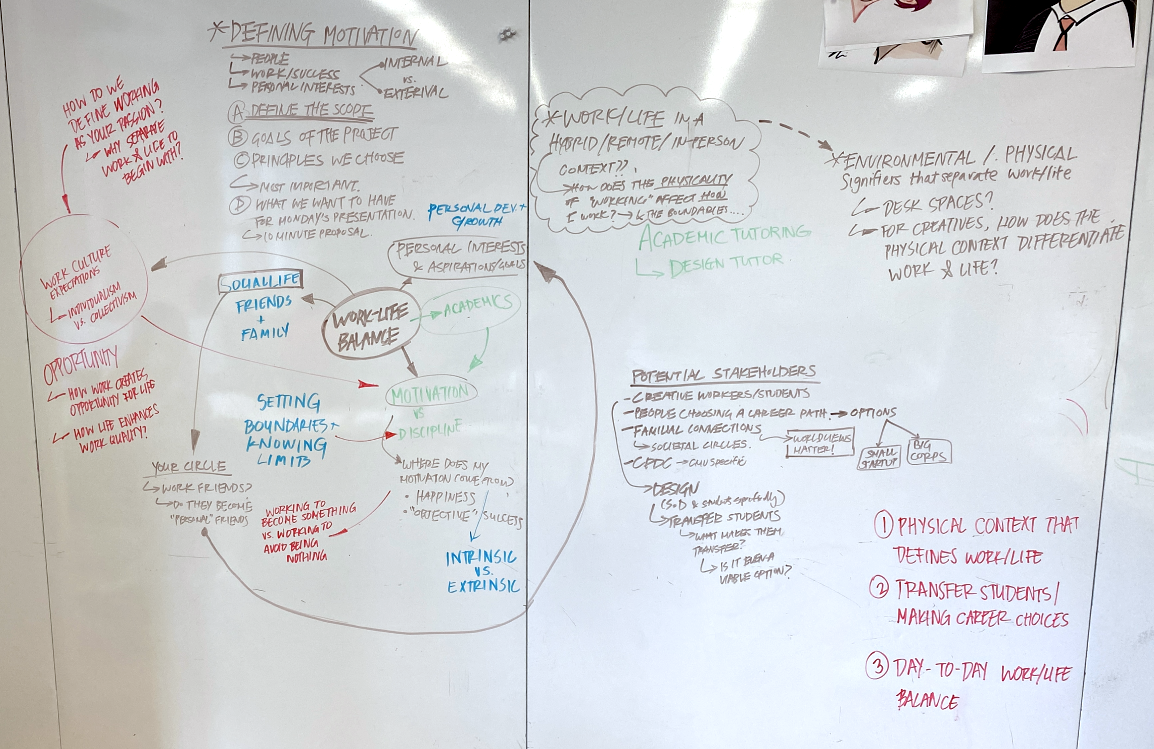 *DEFINING MOTIVATION
↳PEOPLE
↳WORK/SUCCESS
↳PERSONAL INTERESTS
INTERNAL
VS.
EXTERIVAL
Ⓐ DEFINE THE SCOPE
Ⓑ GOALS OF THE PROJECT
Ⓒ PRINCIPLES WE CHOOSE
↳MOST IMPORTANT.
Ⓓ WHAT WE WANT TO HAVE
FOR MONDAY'S PRESENTATION.
↳10 MINUTE PROPOSAL.
HOW DO WE
DEFINE WORKING
AS YOUR PASSION?
↳ WHY SEPARATE
WORK & LIFE TO
BEGIN WITH?
WORK CULTURE
EXPECTATIONS
↳ INDIVIDUALISM
VS. COLLECTIVISM
OPPORTUNITY
↳ HOW WORK CREATES
OPPORTUNITY FOR LIFE
↳ HOW LIFE ENHANCES
WORK QUALITY?
PERSONAL DEV +
GROWTH
PERSONAL INTERESTS
& ASPIRATIONS/GOALS
SOCIAL LIFE
FRIENDS
+
FAMILY
WORK-LIFE
BALANCE
ACADEMICS
MOTIVATION
VS
DISCIPLINE
SETTING
BOUNDARIES +
KNOWING
LIMITS
YOUR CIRCLE
↳WORK FRIENDS?
↳DO THEY BECOME
"PERSONAL" FRIENDS
WHERE DOES MY
MOTIVATION COME FROM?
• HAPPINESS
• "OBJECTIVE" SUCCESS
WORKING TO
BECOME SOMETHING
VS. WORKING TO
AVOID BEING
NOTHING
INTRINSIC
VS.
EXTRINSIC
*WORK/LIFE IN A
HYBRID/REMOTE/IN-PERSON
CONTEXT??
↳HOW DOES THE PHYSICALITY
OF "WORKING" AFFECT HOW
I WORK? → & THE BOUNDARIES....
ACADEMIC TUTORING
↳ DESIGN TUTOR
*ENVIRONMENTAL / PHYSICAL
Signifiers that separate work/life
↳ DESK SPACES?
↳ FOR CREATIVES, HOW DOES THE
PHYSICAL CONTEXT DIFFERENTIATE
WORK & LIFE?
POTENTIAL STAKEHOLDERS
-CREATIVE WORKERS/STUDENTS
-PEOPLE CHOOSING A CAREER PATH → OPTIONS
SMALL
STARTUP
BIG
CORPS
-FAMILIAL CONNECTIONS
↳SOCIETAL CIRCLES.
WORLDVIEWS
MATTER!
-CPDC → CMU SPECIFIC
DESIGN
(SoD & students specifically)
↳TRANSFER STUDENTS
↳WHAT MAKES THEM
TRANSFER?
↳ IS IT EVEN A
VIABLE OPTION?
① PHYSICAL CONTEXT THAT
DEFINES WORK/LIFE
② TRANSFER STUDENTS/
MAKING CAREER CHOICES
③ DAY-TO-DAY WORK/LIFE
BALANCE